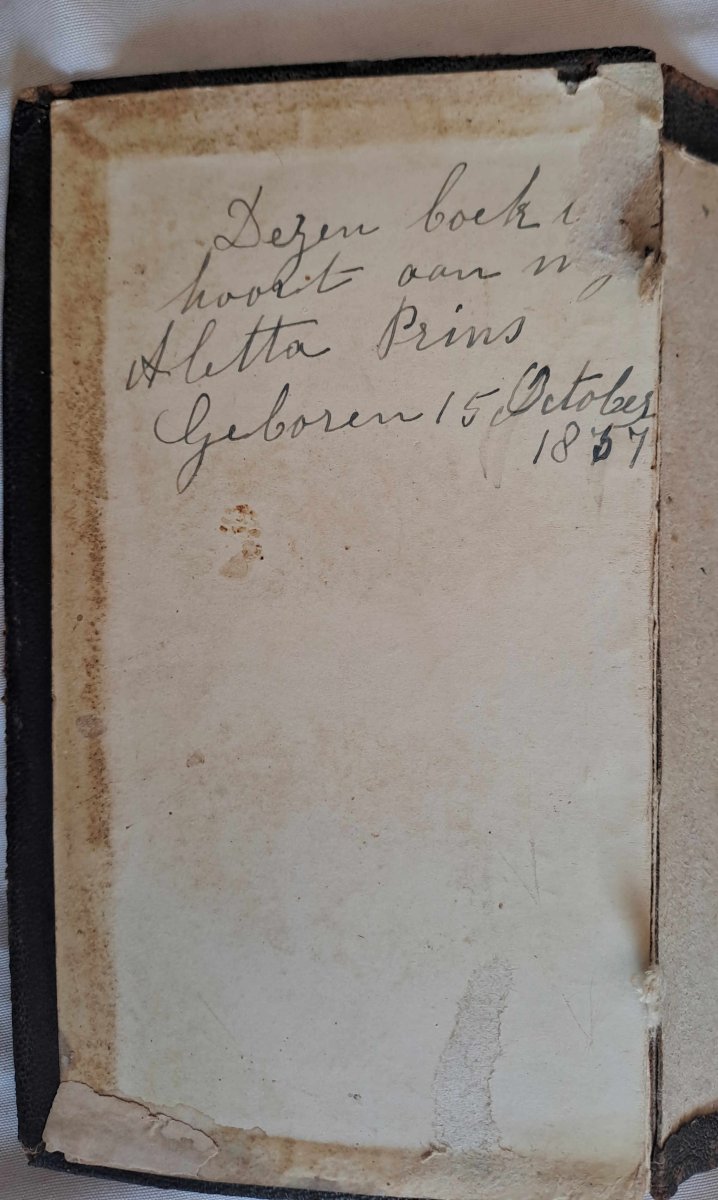 Dezen boek
hoort aan
Aletta Prins
Geboren 15 October
1857